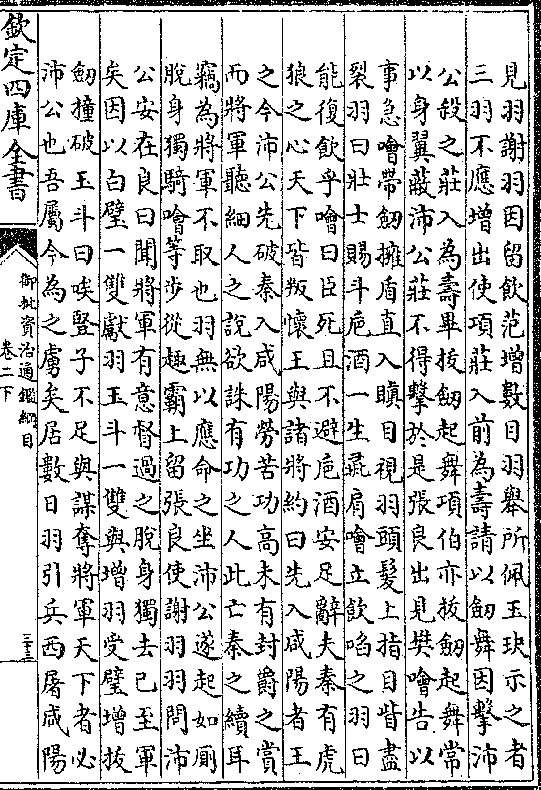 見羽謝羽因留飲范增數目羽舉所佩玉玦示之者
三羽不應增出使項莊入前為壽請以劒舞因擊沛
公殺之莊入為壽畢拔劒起舞項伯亦拔劒起舞常
以身翼蔽沛公莊不得擊於是張良出見樊噲告以
事急噲帶劒擁盾直入瞋目視羽頭髮上指目眥盡
裂羽曰壯士賜斗巵酒一生彘肩噲立飲啗之羽曰
能復飲乎噲曰臣死且不避巵酒安足辭夫秦有虎
狼之心天下皆叛懷王與諸將約曰先入咸陽者王
之今沛公先破秦入咸陽勞苦功高未有封爵之賞
而將軍聽細人之說欲誅有功之人此亡秦之續耳
竊為將軍不取也羽無以應命之坐沛公遂起如廁
脫身獨騎噲等步從趣霸上留張良使謝羽羽問沛
公安在良曰聞將軍有意督過之脫身獨去已至軍
矣因以白璧一雙獻羽玉斗一雙與增羽受璧增拔
劒撞破玉斗曰唉豎子不足與謀奪將軍天下者必
沛公也吾屬今為之虜矣居數日羽引兵西屠咸陽
欽定四庫全書
御批資治通鑑綱目
卷二下